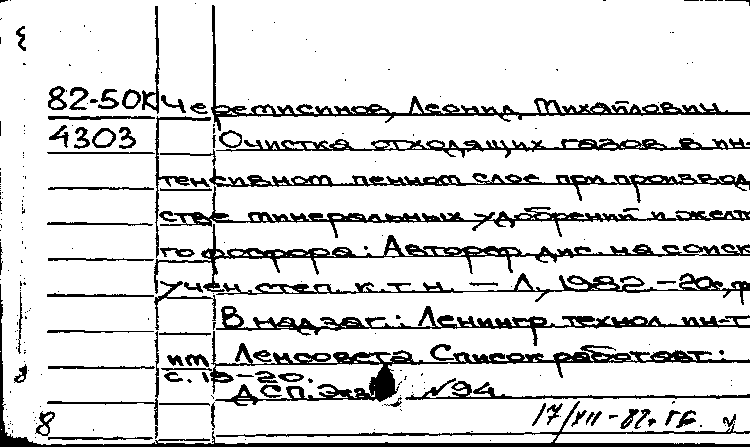 82-50К Черемисинов, Леонид Михайлович
4303 Очистка отходящих газов в ин-
тенсивном пенном слое при производ
стве минеральных удобрений и желт
го фосфора: Автореф. дис. на соиск
учен. степ. к. т. н. — Л., 1982. - 20с,
В надзаг.: Ленингр. технол. ин-т
им Ленсовета Список работ авт:
с. 19-20.
ДСП. Экз №94.
8 17/XII-82г.